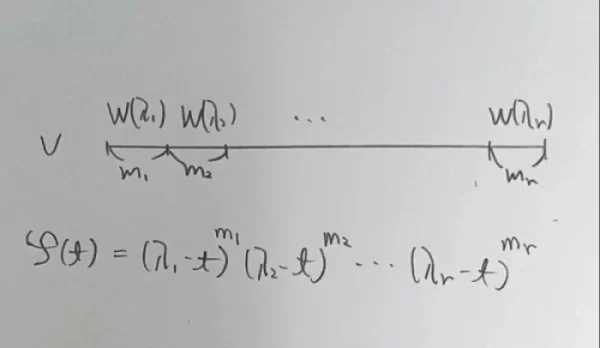 W(λ₁) W(λ₂) ... W(λr)
V
m₁ m₂ mr
φ(t) = (λ₁-t)^m₁ (λ₂-t)^m₂ ... (λr-t)^mr